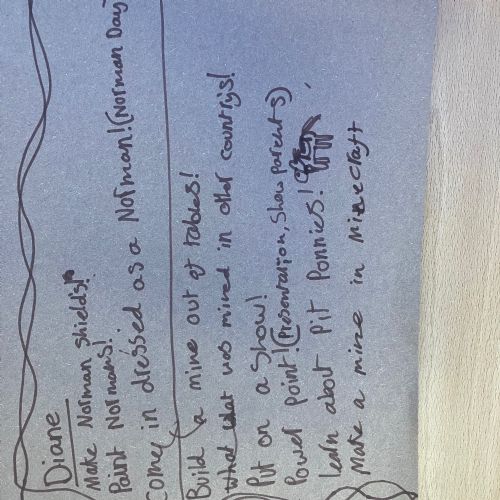 Diane
Make Norman shields!
Paint Normans!
Come in dressed as a Norman! (Norman Day
Build a mine out of tables!
what was mined in other countrys!
Put on a show!
Power point! (Presentation, show parents)
Learn about Pit Ponnies!
Make a mine in Minecraft